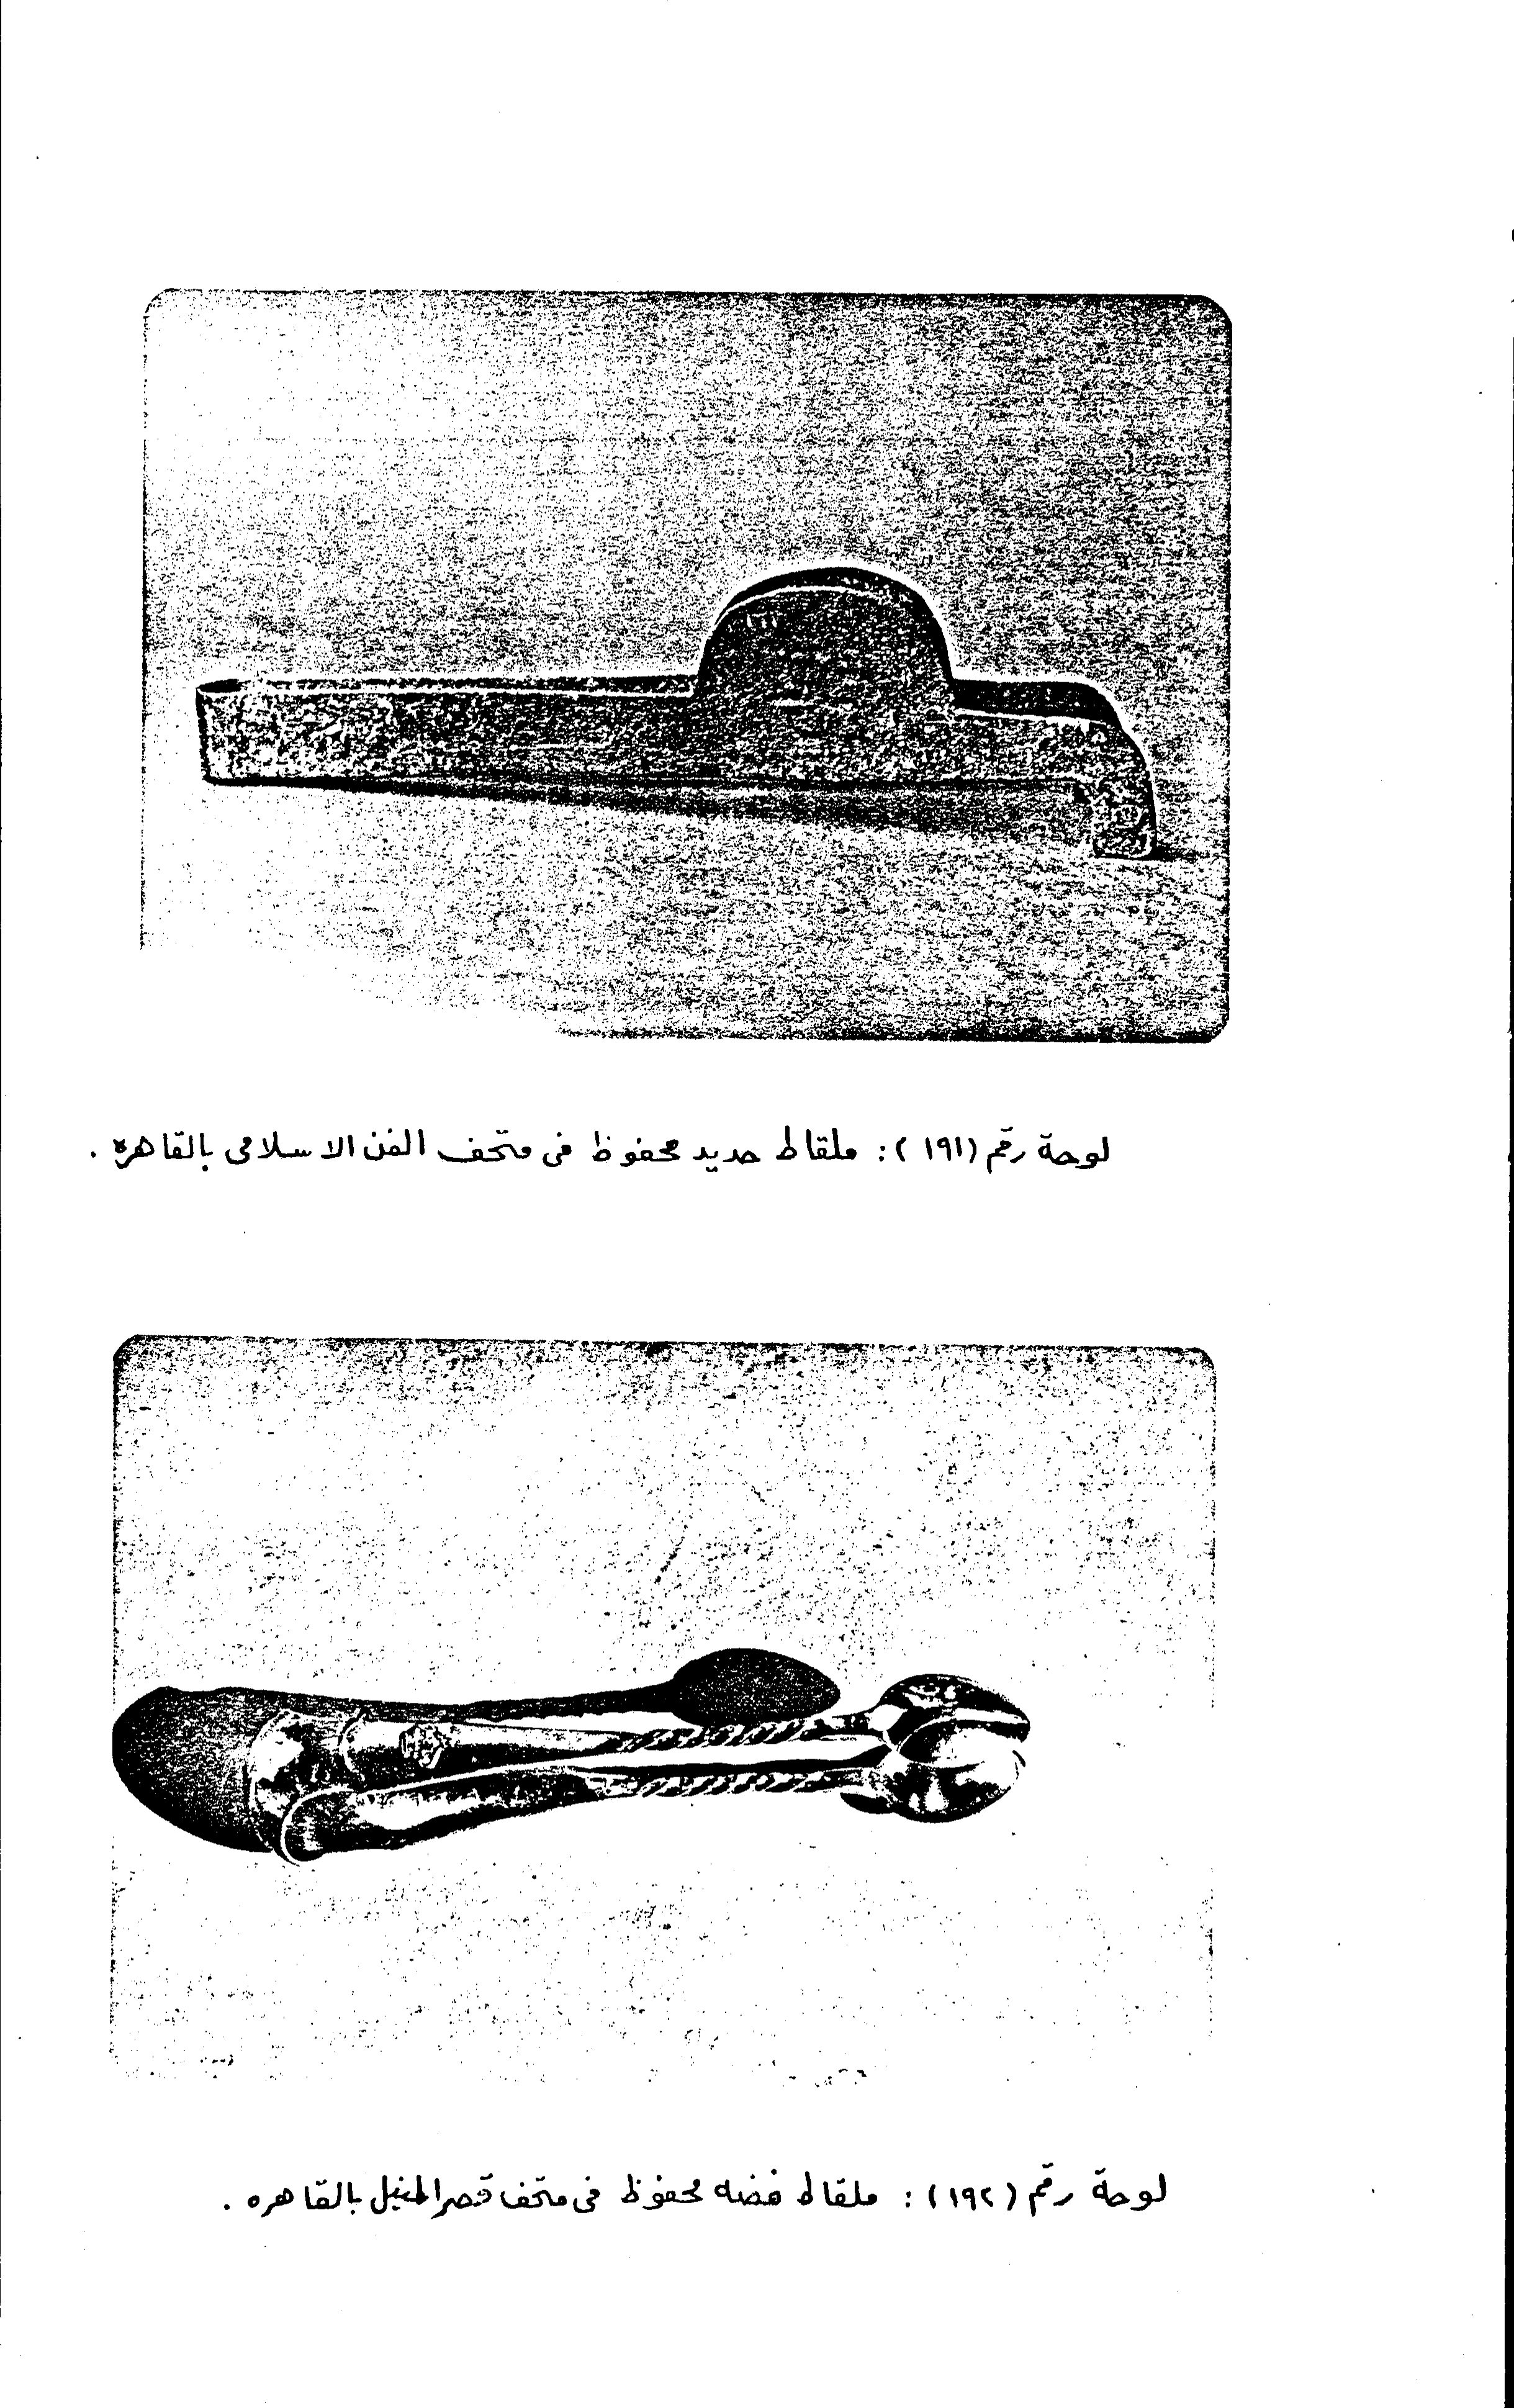 لوحة رقم (١٩١) : ملقاط حديد محفوظ فى متحف الفن الاسلامى بالقاهره .
لوحة رقم (١٩٢) : ملقاط فضه محفوظ فى متحف قصر المنيل بالقاهره .